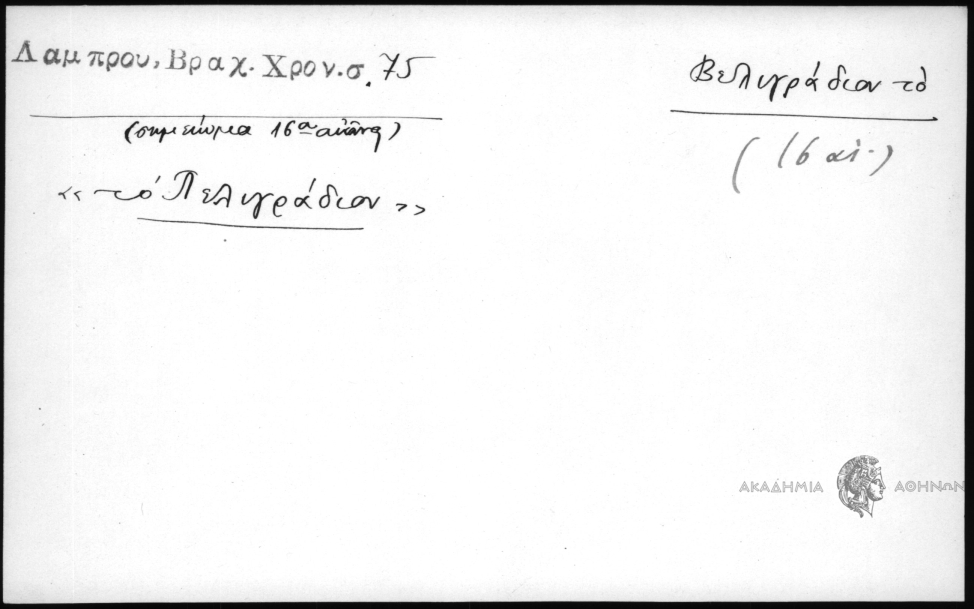 Λαμπρου, Βραχ. Χρον. σ. 75
Βελιγράδιον τὸ
(σημείωμα 16ου αἰῶνος)
(16 αἰ.)
«τὸ Πελιγράδιον»
ΑΚΑΔΗΜΙΑ ΑΘΗΝΩΝ